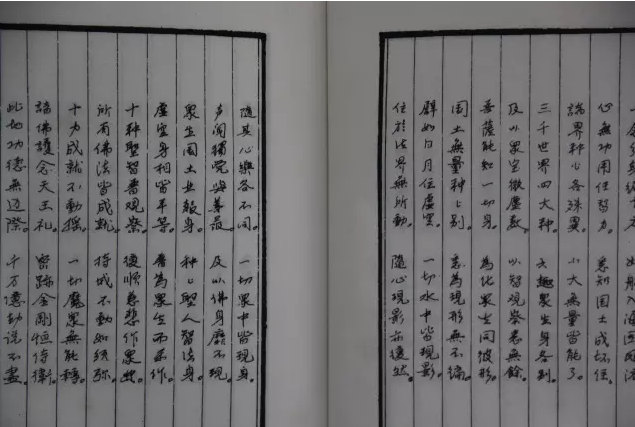 心無功用任智力。悉知国土成坏住。
諸界种〻各殊異。小大無量皆能了。
三千世界四大种。六趣衆生身各别。
及以衆宝微塵數。以智观察悉無餘。
菩薩能知一切身。為化衆生同彼形。
国土無量种〻别。悉為現形無不徧。
譬如日月住虛空。一切水中皆現影。
住於法界無所動。隨心現影亦復然。
隨其心樂各不同。一切衆中皆現身。
声聞獨覺與菩薩。及以佛身靡不現。
衆生国土业報身。种〻聖人智法身。
虛空身相皆平等。普為衆生而示作。
十种聖智普观察。復順慈悲作衆业。
所有佛法皆成就。持戒不動如須弥。
十力成就不動搖。一切魔衆無能轉。
諸佛護念天王礼。密跡金剛恒侍衛。
此地功德無邊際。千万億劫說不盡。